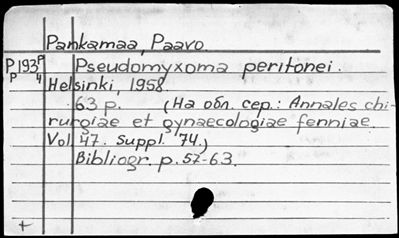 Pankamaa, Paavo.
P193P Pseudomyxoma peritonei.
P 4 Helsinki, 1958.
63 p. (На обл. сер.: Annales chi-
rurgiae et gynaecologiae fenniae.
Vol. 47. Suppl. 74.)
Bibliogr. p. 57-63.
+